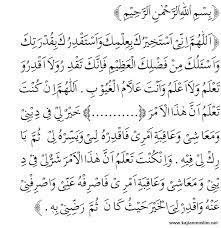 ( بِسْمِ اللهِ الرَّحْمٰنِ الرَّحِيْمِ )
( اَللّٰهُمَّ اِنِّيْ اَسْتَخِيْرُكَ بِعِلْمِكَ وَاَسْتَقْدِرُكَ بِقُدْرَتِكَ
وَاَسْئَلُكَ مِنْ فَضْلِكَ الْعَظِيْمِ فَاِنَّكَ تَقْدِرُ وَلَا اَقْدِرُ وَ
تَعْلَمُ وَلَا اَعْلَمُ وَاَنْتَ عَلَّامُ الْغُيُوْبِ . اَللّٰهُمَّ اِنْ كُنْتَ
تَعْلَمُ اَنَّ هٰذَا الْاَمْرَ (............) خَيْرٌ لِيْ فِيْ دِيْنِيْ
وَمَعَاشِيْ وَعَاقِبَةِ اَمْرِيْ فَاقْدُرْهُ لِيْ وَيَسِّرْهُ لِيْ ثُمَّ بَا
رِكْ لِيْ فِيْهِ . وَاِنْ كُنْتَ تَعْلَمُ اَنَّ هٰذَا الْاَمْرَ شَرٌّ لِيْ فِيْ
دِيْنِيْ وَمَعَاشِيْ وَعَاقِبَةِ اَمْرِيْ فَاصْرِفْهُ عَنِّيْ وَاصْرِفْنِيْ
عَنْهُ وَاقْدُرْ لِيَ الْخَيْرَ حَيْثُ كَانَ ثُمَّ رَضِّنِيْ بِهِ . )
www.kajianmuslim.net